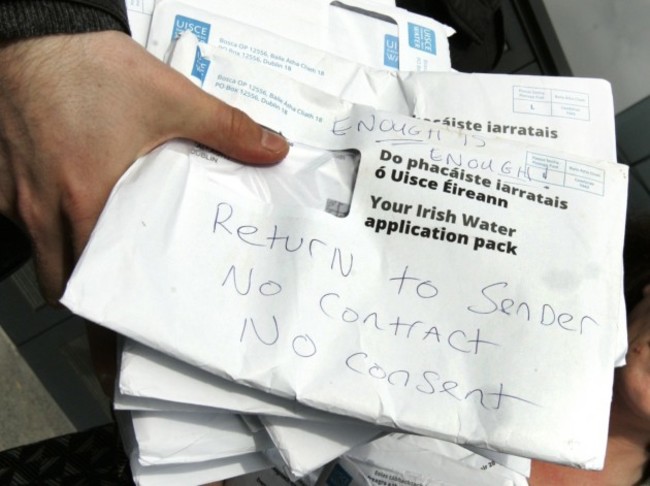 UISCE
WATER
Bosca OP 12556, Baile Átha Cliath 18
PO Box 12556, Dublin 18
UISCE
WATER
Bosca OP 12556, Baile Átha Cliath 18
PO Box 12556, Dublin 18
phacáiste iarratais
DUBLIN
ENOUGH IS
ENOUGH!
Do phacáiste iarratais
ó Uisce Éireann
Your Irish Water
application pack
Return to Sender
No contract
No consent